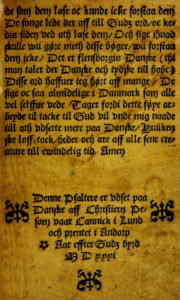 de som dem lase oc kunde icke forstaa dem
De fonge lede der aff till Gudz ord, oc ke
des siden ved ath lase dem, Och sige Haad
skulle wij gøre meth disse bøger, wij forstaa
dem icke, Det er flensborgis Danske, thi
man taler det Danske och tydske till hobe,
Disse ord haffuer ieg hørt aff mange, De
sige oc saa almidelige i Danmarck som alle
vel selffue vede Tager fordi dette føye ar
beyde til tacke til Gud vil vnde mig naade
till ath vdsette mere paa Danske,
loff, tack, heder och ære aff alle sene crea
ture till ewindelig tid Amen
Denne Psaltere er vdset paa
Danske aff Christiern Pe
dersøn vaar Cannick i Lund
och prentet i Andorp
Aar effter Gudz byrd
M D XXXI